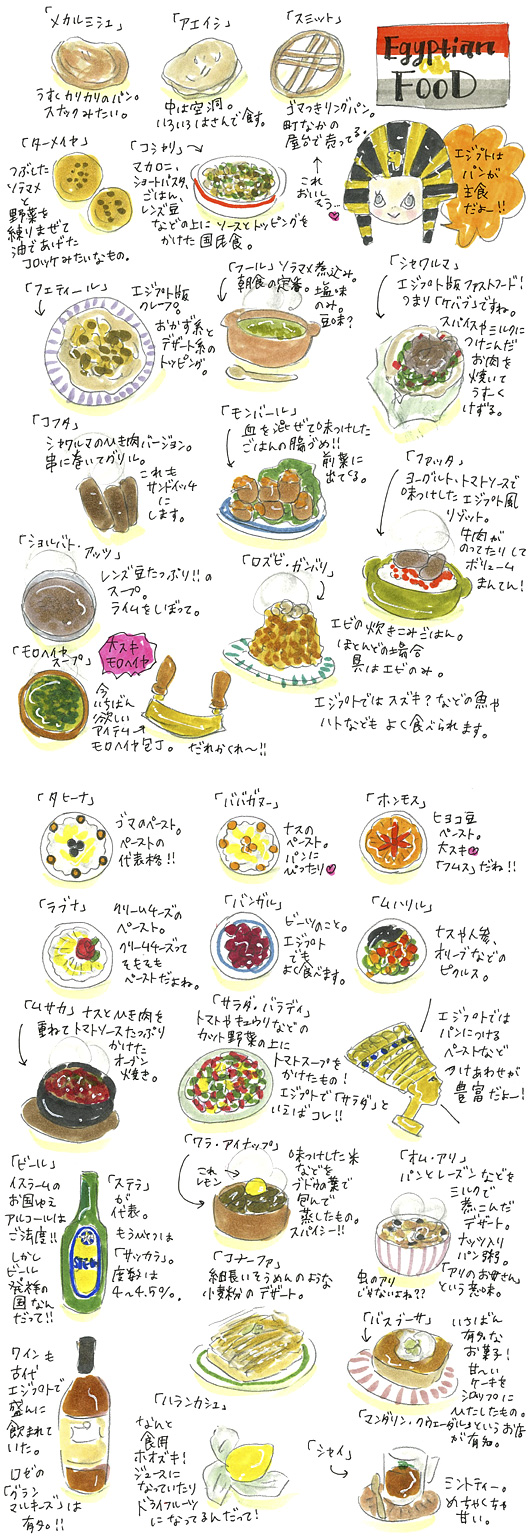 「メカルミシェ」
うすくカリカリのパン。
スナックみたい。
「アエイシ」
中は空洞。
いろいろはさんで食す。
「スミット」
ゴマつきリングパン。
町なかの
屋台で売ってる。
これ
おいし
そう…
Egyptian
FOOD
エジプトは
パンが
主食
だよー!!
「ターメイヤ」
つぶした
ソラマメ
と
野菜を
練りまぜて
油であげた
コロッケみたいなもの。
「コシャリ」
マカロニ、
ショートパスタ、
ごはん、
レンズ豆
などの上にソースとトッピングを
かけた国民食。
「フェティール」
エジプト版
クレープ。
おかず系と
デザート系の
トッピング。
「フール」ソラマメ煮込み。
朝食の定番。
塩味
のみ。
豆味?
「シャワルマ」
エジプト版ファストフード!
つまり「ケバブ」ですね。
スパイスやミルクに
つけこんだ
お肉を
焼いて
うすく
けずる。
「コフタ」
シャワルマのひき肉バージョン。
串に巻いてグリル。
これも
サンドイッチ
に
します。
「モンバール」
血を混ぜて味つけした
ごはんの腸づめ!!
前菜に
出てくる。
「ファッタ」
ヨーグルト、トマトソースで
味つけしたエジプト風
リゾット。
牛肉が
のってたりして
ボリューム
まんてん!
「ショルバト・アッツ」
レンズ豆たっぷり!!の
スープ。
ライムをしぼって。
「ロズビ・ガンバリ」
エビの炊きこみごはん。
ほとんどの場合
具はエビのみ。
「モロヘイヤ
スープ」
大スキ
モロヘイヤ
今
いちばん
欲しい
アイテム→
モロヘイヤ包丁。だれかくれ〜!!
エジプトではスズキ?などの魚や
ハトなどもよく食べられます。
「タヒーナ」
ゴマのペースト。
ペーストの
代表格!!
「ババガヌー」
ナスの
ペースト。
パンに
ぴったり
「ホンモス」
ヒヨコ豆
ペースト。
大スキ
「フムス」だね!!
「ラブナ」
クリームチーズの
ペースト。
クリームチーズって
そもそも
ペーストだよね。
「バンガル」
ビーツのこと。
エジプト
でも
よく食べます。
「ムハリル」
ナスや人参、
オリーブなどの
ピクルス。
「ムサカ」ナスとひき肉を
重ねてトマトソースたっぷり
かけた
オーブン
焼き。
「サラダ・バラディ」
トマトやキュウリなどの
カット野菜の上に
トマトスープを
かけたもの!
エジプトで「サラダ」と
いえばコレ!!
エジプトでは
パンにつける
ペーストなど
つけあわせが
豊富だよー!
「ビール」
イスラームの
お国ゆえ
アルコールは
ご法度!!
しかし
ビール
発祥の
国なん
だって!!
「ステラ」
が
代表。
もうひとつは
「サッカラ」。
度数は
4〜4.5%。
「ワラ・アイナップ」
これ
レモン
味つけした米
などを
ブドウの葉で
包んで
蒸したもの。
スパイシー!!
「オム・アリ」
パンとレーズンなどを
ミルクで
煮こんだ
デザート。
ナッツ入り
パン粥。
「アリのお母さん」
という意味。
虫のアリ
じゃないよね??
「コナーファ」
細長いそうめんのような
小麦粉のデザート。
「バスブーサ」
いちばん
有名な
お菓子!
甘〜い
ケーキを
シロップに
ひたしたもの。
「マンダリン・クウェーダル」というお店
が有名。
ワインも
古代
エジプトで
盛んに
飲まれて
いた。
ロゼの
「グラン
マルキーズ」は
有名!!
「ハランカシェ」
なんと
食用
ホオズキ!
ジュースに
なっていたり
ドライフルーツ
になってるんだって!
「シャイ」
ミントティー。
めちゃくちゃ
甘い。